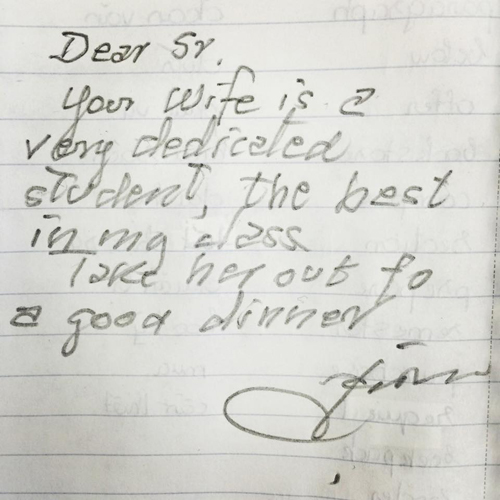 Dear Sr.
Your wife is a
very dedicated
student, the best
in my class
Take her out fo
a good dinner